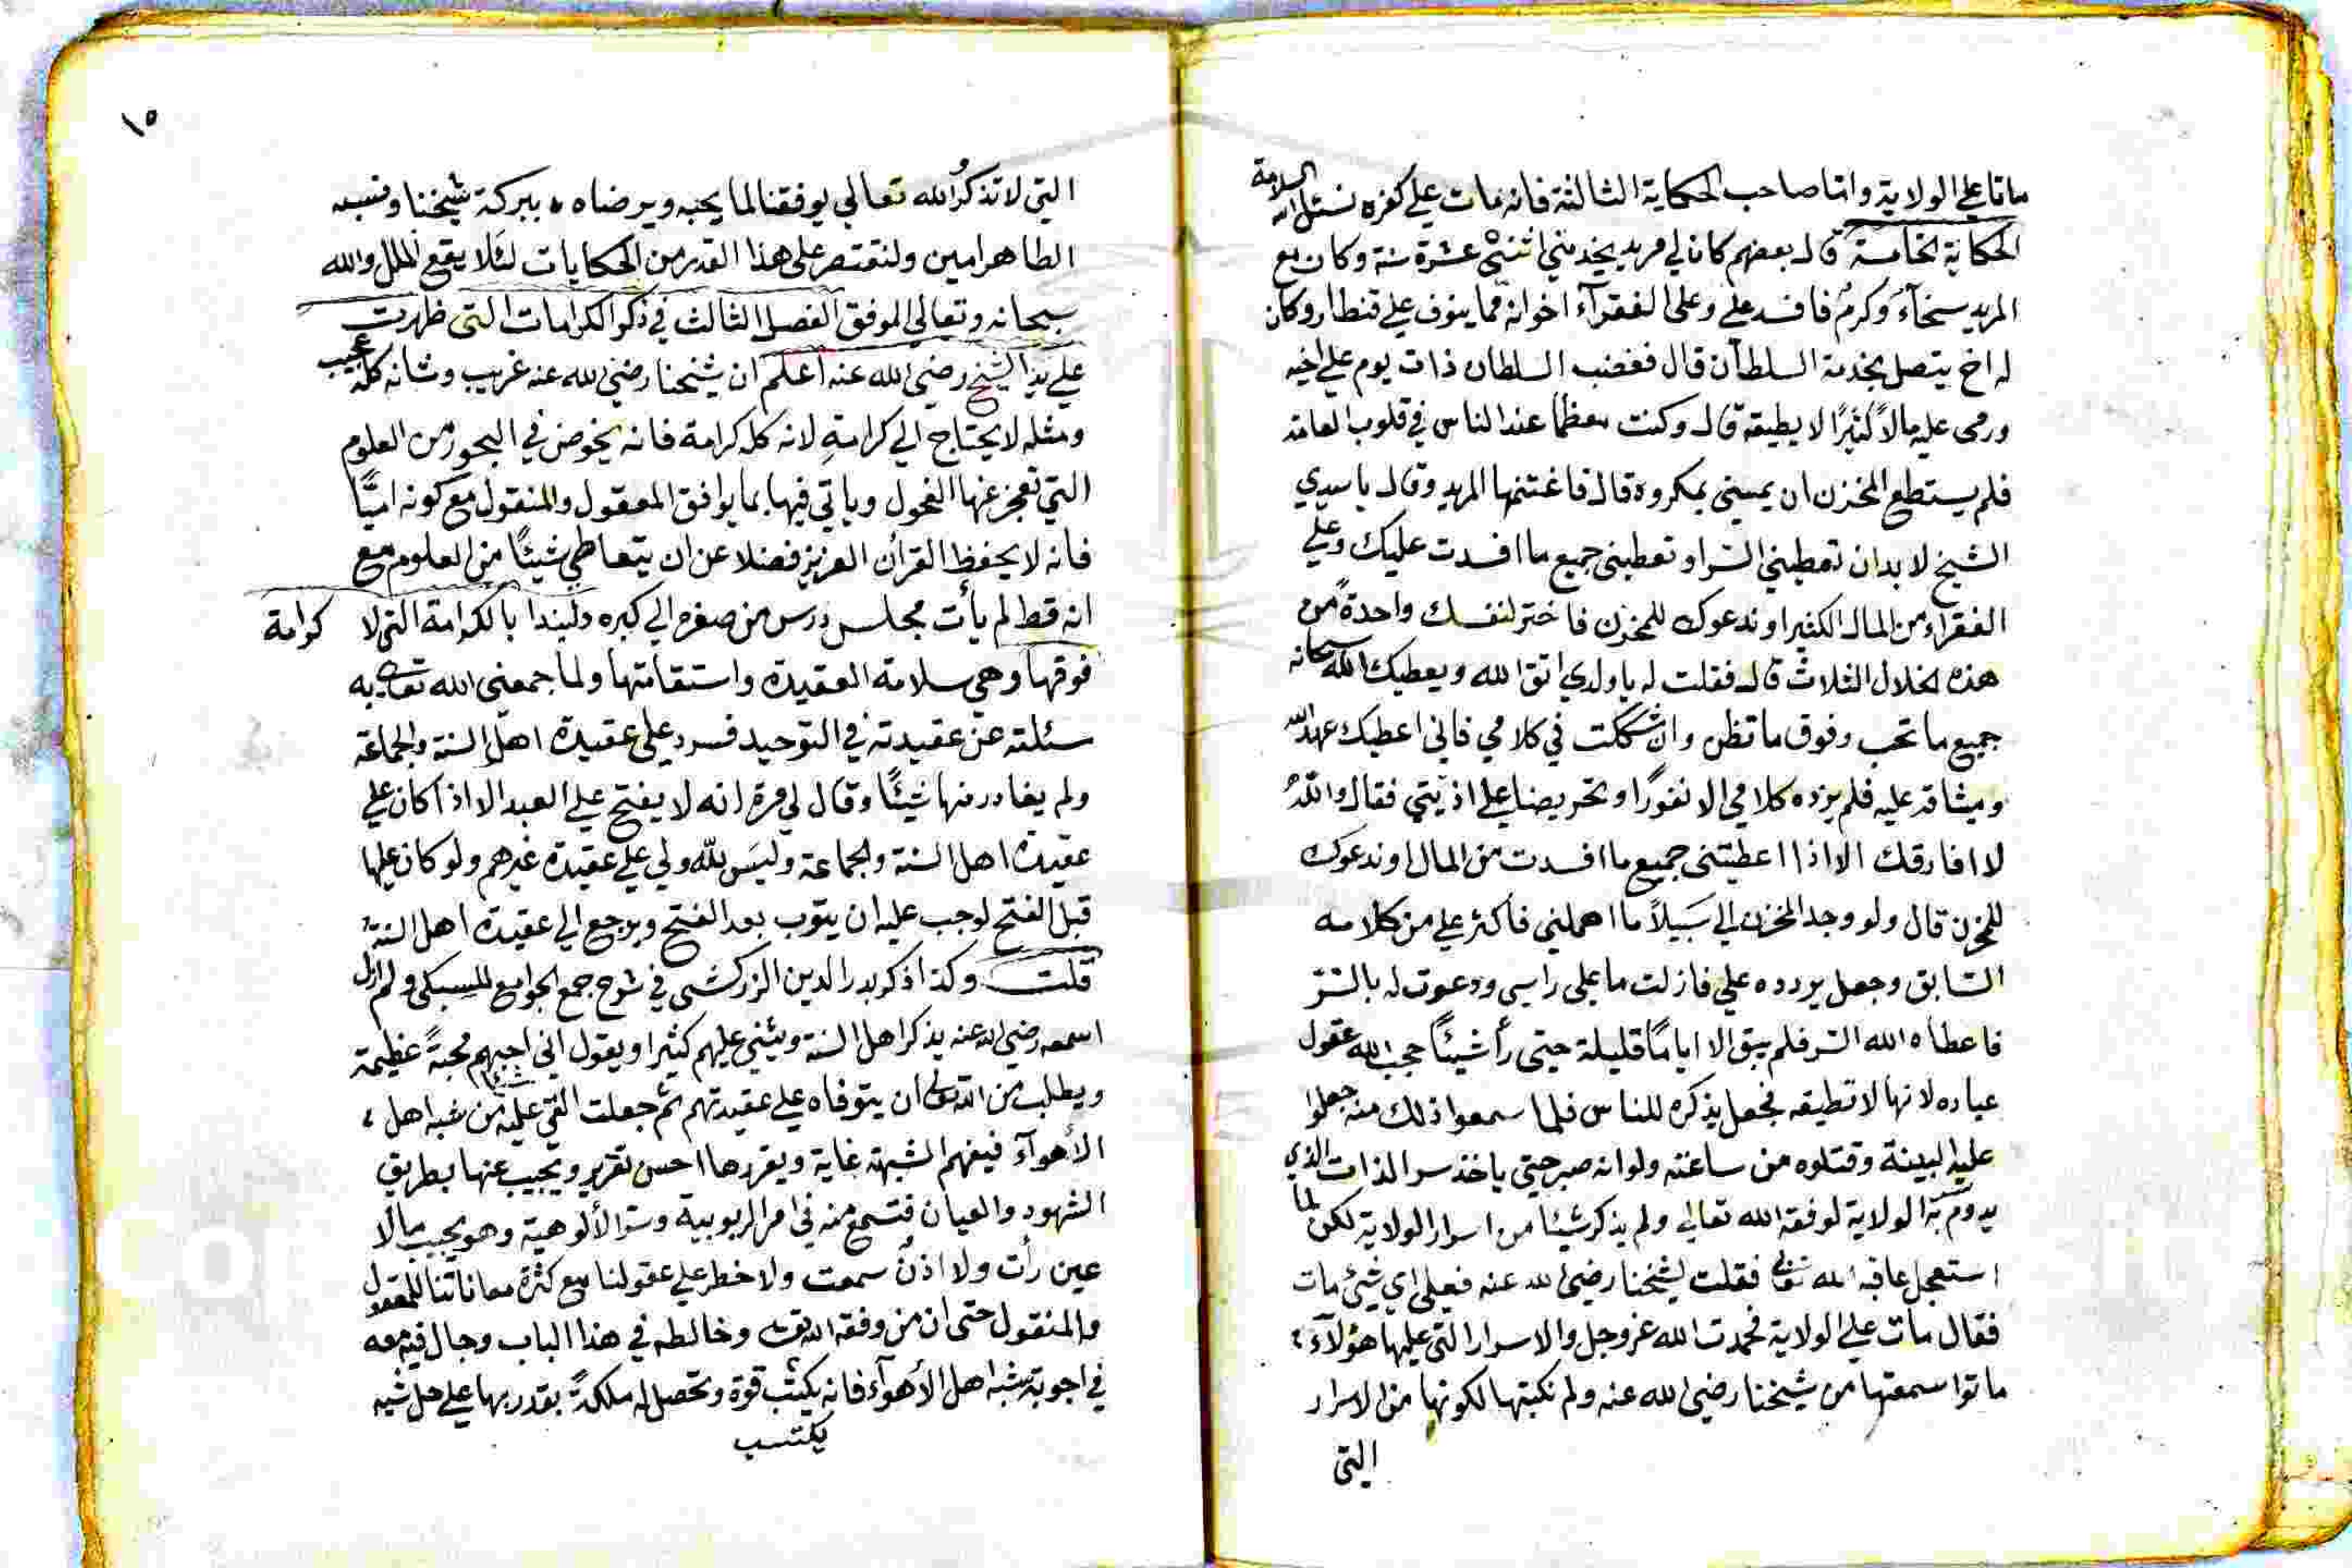 ماتا على الولاية واما صاحب الحكاية الثالثة فانه مات على كفره نسئل الله السلامة
الحكاية الخامسة قال بعضهم كان لي مريد يخدمني اثنتى عشرة سنة وكان مع
المريد سخآء وكرم فافسد علي وعلى الفقرآء اخوانه مما ينوف على قنطار وكان
له اخ يتصل بخدمة السلطان قال فغضب السلطان ذات يوم على اخيه
ورمى عليه مالاً كثيرًا لا يطيقه قال وكنت معظما عند الناس في قلوب العامة
فلم يستطع المخزن ان يمسني بمكروه قال فاغتنمها المريد وقال يا سيدي
الشيخ لا بد ان تعطيني السر او تعطيني جميع ما افسدت عليك وعلي
الفقراء من المال الكثير او ندعوك للمخزن فاختر لنفسك واحدةً من
هذه الخلال الثلاث قال فقلت له يا ولدي اتق الله ويعطيك الله سبحانه
جميع ما تحب وفوق ما تظن وان شككت في كلامي فاني اعطيك عهد الله
وميثاقه عليه فلم يزده كلامي الا نفورًا وتحريضا على اذيتي فقال والله
لا افارقك الا اذا اعطيتني جميع ما افسدت من المال او ندعوك
للمخزن قال ولو وجد المخزن الي سَبيلاً ما اهملني فاكثر علي من كلامه
السابق وجعل يردده علي فازلت ما على راسي ودعوت له بالسر
فاعطاه الله السر فلم يبق الا ايامًا قليلة حتى رأ شيئًا حجب الله عقول
عباده لانها لا تطيقه فجعل يذكره للناس فلما سمعوا ذلك منه جعلوا
عليه البينة وقتلوه من ساعته ولو انه صبر حتي ياخذ سر الذات الذي
يدوم به الولاية لوفقه الله تعالى ولم يذكر شيئا من اسرار الولاية لكن لما
استعجل عاقبه الله تعالى فقلت لشيخنا رضي الله عنه فعلى اي شيئ مات
فقال مات على الولاية فحمدت الله عز وجل والاسرار التي عليها هؤلآء
ماتوا سمعتها من شيخنا رضي الله عنه ولم نكتبها لكونها من الاسرار
التى
١٥
التي لا تذكرُ الله تعالى يوفقنا لما يحبه ويرضاه ببركة شيخنا ونسبه
الطاهر امين ولنقتصر على هذا القدر من الحكايات لئلا يقع الملل والله
سبحانه وتعالى الموفق الفصل الثالث في ذكر الكرامات التي ظهرت
على يد الشيخ رضي الله عنه اعلم ان شيخنا رضي الله عنه غريب وشانه كله عجيب
ومثله لا يحتاج الي كرامةٍ لانه كله كرامة فانه يخوض في البحور من العلوم
التي تعجز عنها الفحول وياتي فيها بما يوافق المعقول والمنقول مع كونه اميًّا
فانه لا يحفظ القرأن العزيز فضلا عن ان يتعاطي شيئًا من العلوم مع
انه قط لم يأت مجلس درس من صغره الي كبره ولنبدا بالكرامة التي لا كرامة
فوقها وهي سلامة العقيدة واستقامتها ولما جمعني الله تعالى به
سئلته عن عقيدته في التوحيد فسرد على عقيدة اهل السنة والجماعة
ولم يغادر منها شيئًا وقال لي مرة انه لا يفتح على العبد الا اذا كان على
عقيدة اهل السنة والجماعة وليسَ لله ولي علي عقيدة غيرهم ولو كان عليها
قبل الفتح لوجب عليه ان يتوب بعد الفتح ويرجع الي عقيدة اهل السنة
قلت وكذا ذكر بدر الدين الزركشى في شرح جمع الجوامع للسبكى ولم ازل
اسمعه رضي الله عنه يذكر اهل السنة ويثني عليهم كثيرا ويقول انى احبهم محبةً عظيمة
ويطلب من الله تعالى ان يتوفاه على عقيدتهم ثم جعلت القي عليه شيئا من شبه اهل
الأهوآء فيفهم الشبهة غاية ويقررها احسن تقرير ويجيب عنها بطريق
الشهود والعيان فتسمع منه في امر الربوبية وسر الألوهية وهو يجيب مالا
عين رأت ولا اذنٌ سمعت ولا خطر على عقولنا مع كثرة معاناتنا للمعقول
والمنقول حتى ان من وفقه الله تعالى وخالطه في هذا الباب وجال فيه معه
في اجوبة شبه اهل الأهوآء فانه يكتسب قوة وتحصل له ملكةً بقدر بها على حل شبه
يكتسب